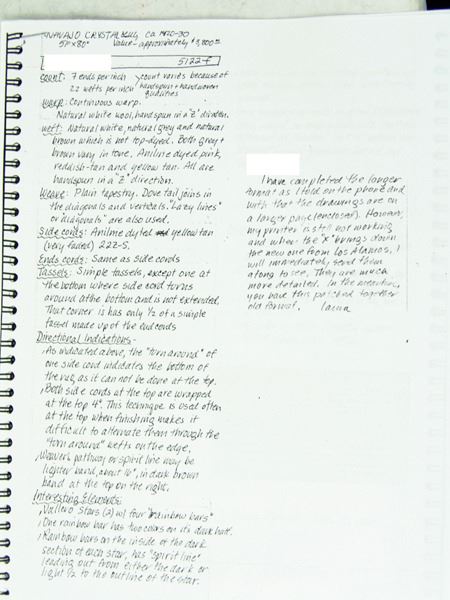 NAVAJO CRYSTAL RUG, Ca 1920-30
51" x 80" Value - approximately $3,800.00
5122-f
count: 7 ends per inch count varies because of
22 wefts per inch handspun + handwoven
qualities
warp: Continuous warp.
Natural white wool, handspun in a "Z" direction.
weft: Natural white, natural grey and natural
brown which is not top-dyed. Both grey +
brown vary in tone. Aniline dyed pink,
reddish-tan and yellow tan. All are
handspun in a "Z" direction.
Weave: Plain tapestry. Dove tail joins in
the diagonals and verticals. "Lazy lines"
or diagonals" are also used.
Side cords: Aniline dyed yellow tan
(very faded) 2Z-S.
Ends cords: Same as side cords
Tassels: Simple tassels, except one at
the bottom where side cord turns
around at the bottom and is not extended.
That corner has only 1/2 of a simple
tassel made up of the end cords
Directional Indications -
As indicated above, the "turn around" of
one side cord indicates the bottom of
the rug, as it can not be done at the top.
Both side cords at the top are wrapped
at the top 4". This technique is used often
at the top when finishing makes it
difficult to alternate them through the
"turn around" wefts on the edge.
Weaver's pathway or spirit line may be
lighter band, about 1/8", in dark brown
band at the top on the right.
Interesting Elements:
Vallero Stars (2) w/ four "rainbow bars"
One rainbow bar has two colors on its dark half.
Rainbow bars on the inside of the dark
section of each star, has "spirit line"
leading out from either the dark or
light 1/2 to the outline of the star.
I have completed the longer
format as I told on the phone and
with that the drawings are on
a larger page (enclosed). However,
my printer is still not working
and when the "x" brings down
the new one from Los Alamos, I
will immediately send them
along to see. They are much
more detailed. In the meantime,
you have this patched together
old format.